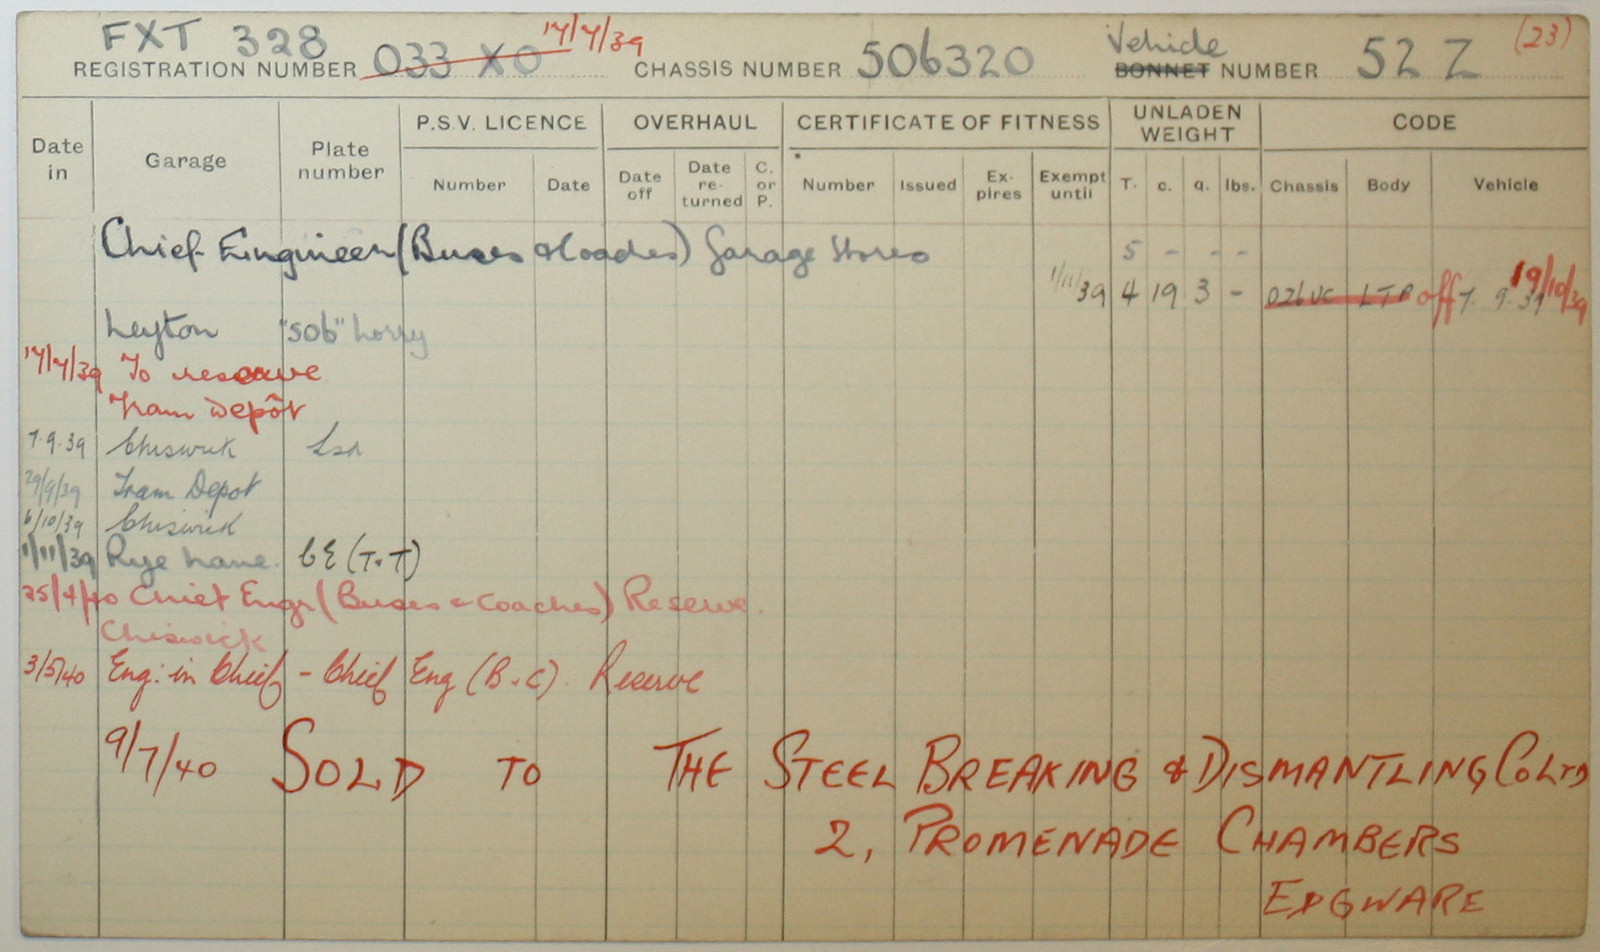 FXT 328 17/7/39 (23)
REGISTRATION NUMBER 033 XO CHASSIS NUMBER 506320 Vehicle BONNET NUMBER 52 Z
Date in Garage Plate number P.S.V. LICENCE OVERHAUL CERTIFICATE OF FITNESS UNLADEN WEIGHT CODE
Number Date Date off Date re-turned C. or P. Number Issued Ex-pires Exempt until T. c. q. lbs. Chassis Body Vehicle
Chief Engineer (Buses & Coaches) Garage Stores 5 - - -
1/11/39 4 19 3 - 026 UC LTP off 7. 9. 39 19/10/39
Leyton "SOB" Lorry
17/7/39 To reserve
Tram Depôt
7.9.39 Chiswick
29/9/39 Tram Depot
6/10/39 Chiswick
1/11/39 Rye Lane. CE (T.T)
25/4/40 Chief Engr (Buses & Coaches) Reserve.
Chiswick
3/5/40 Eng: in Chief - Chief Eng (B.C). Reserve
9/7/40 SOLD TO THE STEEL BREAKING & DISMANTLING CO LTD
2, PROMENADE CHAMBERS
EDGWARE